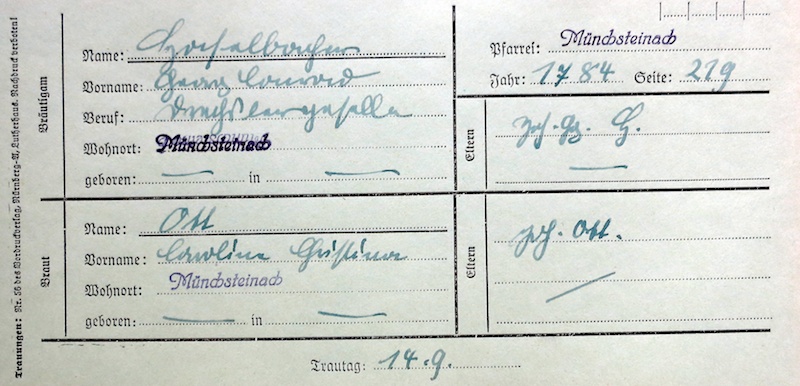 Trauungen: Nr. 56 des Vordruckverlag, Nürnberg-A, Lutherhaus. Nachdruck verboten!
Bräutigam
Name: Hoeselbacher
Vorname: Georg Conrad
Beruf: Drechslergeselle
Wohnort: Münchsteinach
geboren: — in —
Pfarrei: Münchsteinach
Jahr: 1784 Seite: 219
Eltern
Joh. Gg. H.
—
Braut
Name: Ott
Vorname: Caroline Christina
Wohnort: Münchsteinach
geboren: — in —
Eltern
Joh. Ott.
Trautag: 14.9.